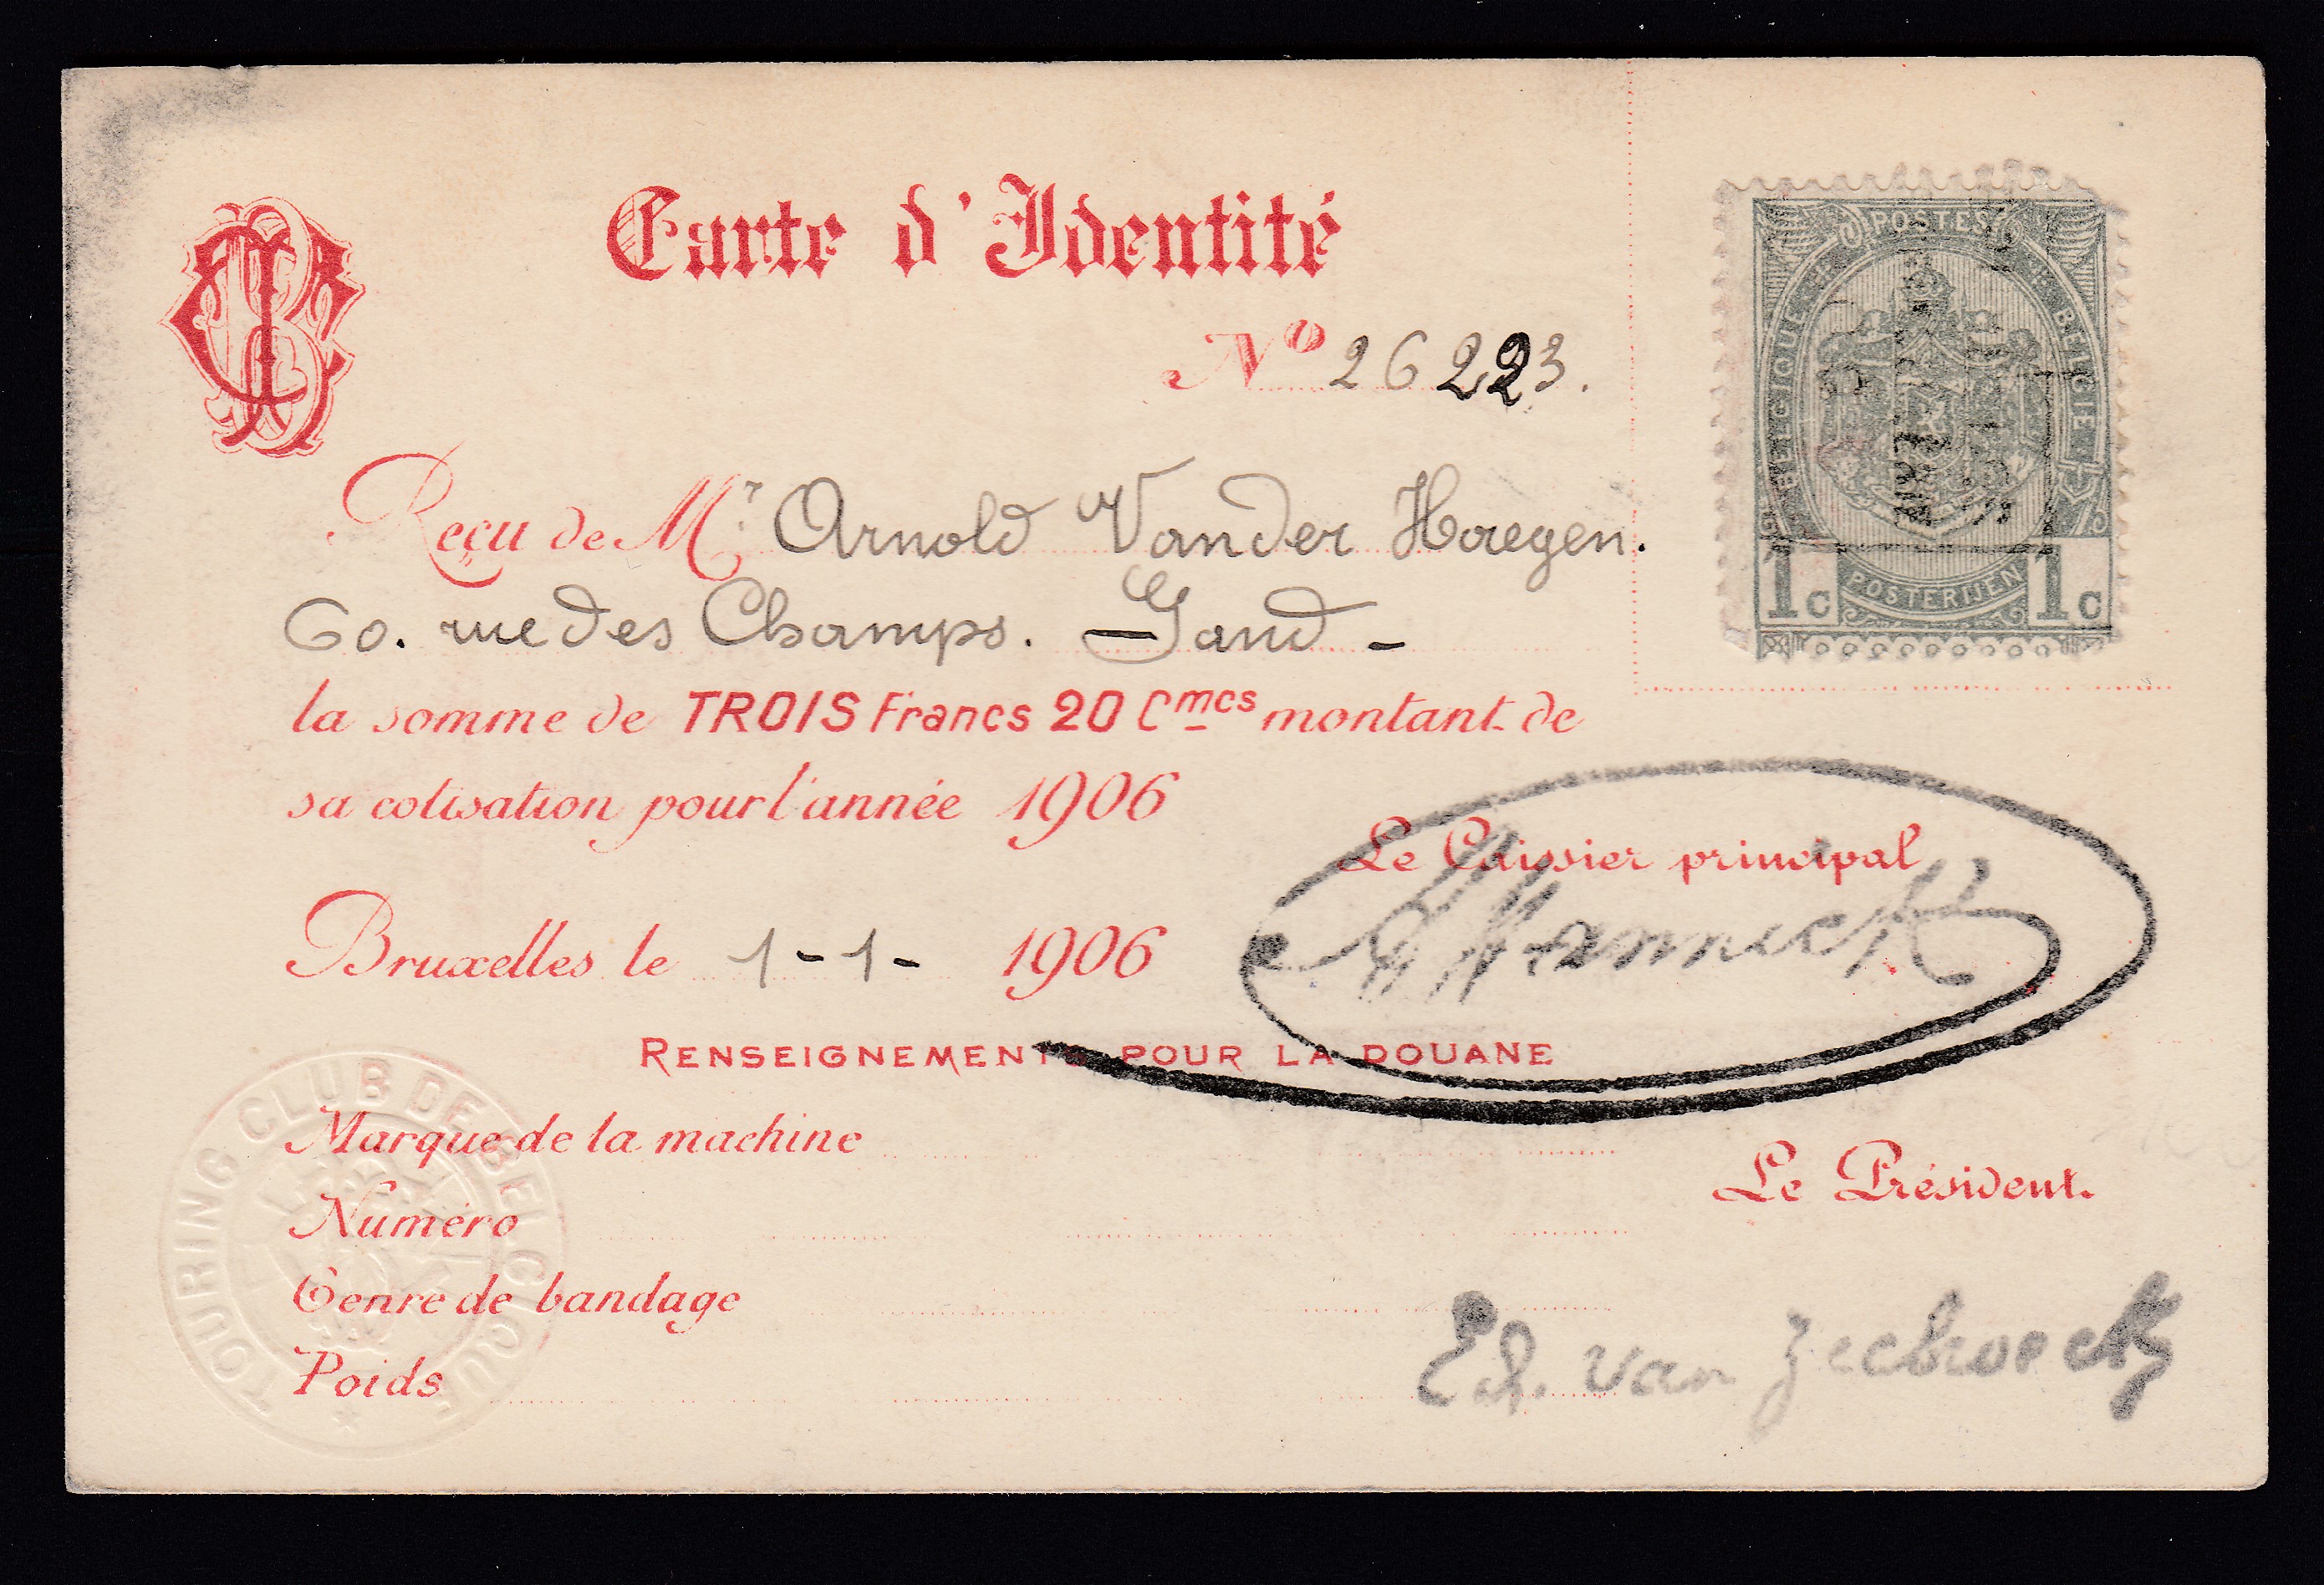 Carte d'Identité
Nº 26223.
POSTES
BELGIQUE
BELGIE
POSTERIJEN
1c 1c
Reçu de Mr. Arnold Vander Haegen.
60. rue des Champs. Gand -
la somme de TROIS Francs 20 Cmes montant de
sa cotisation pour l'année 1906
Le Caissier principal
Bruxelles le 1-1- 1906
RENSEIGNEMENTS POUR LA DOUANE
Marque de la machine
Numéro
Genre de bandage
Poids
Le Président.
TOURING CLUB DE BELGIQUE